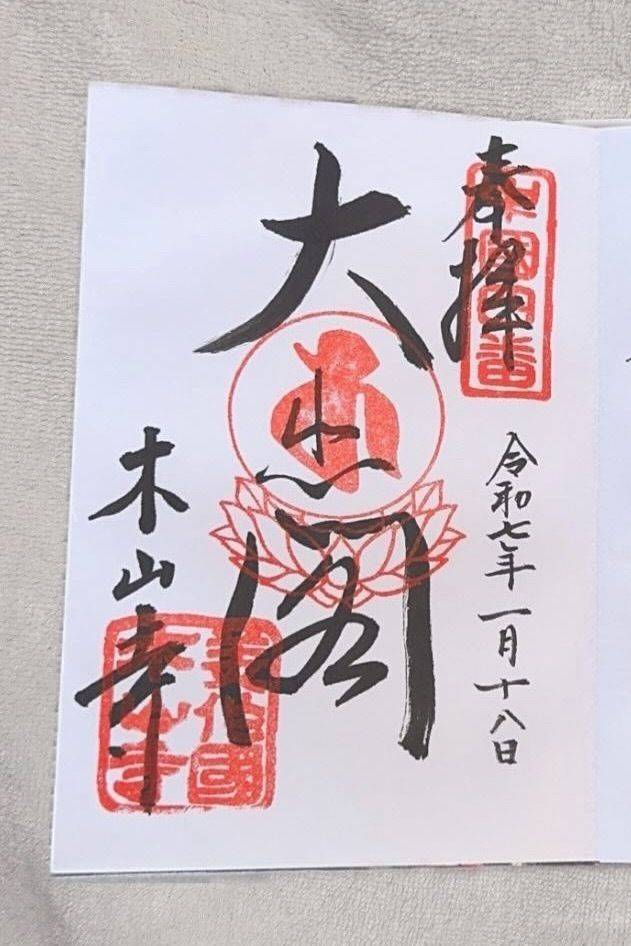 奉拝
中國四番
令和七年一月十八日
大悲閣
木山寺
美作國
木山寺